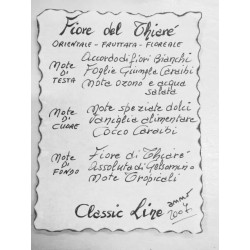 Fiore del Thiaré
ORIENTALE - FRUTTATA - FLOREALE
NOTE DI TESTA
Accordo di fiori Bianchi
Foglie Giungla Caraibi
Nota ozono e acqua salata
NOTE DI CUORE
Note speziate dolci
Vaniglia alimentare
Cocco Caraibi
NOTE DI FONDO
Fiore di Thiaré
Assoluta di Gelsomino
Note Tropicali
Classic Line
anno 2007